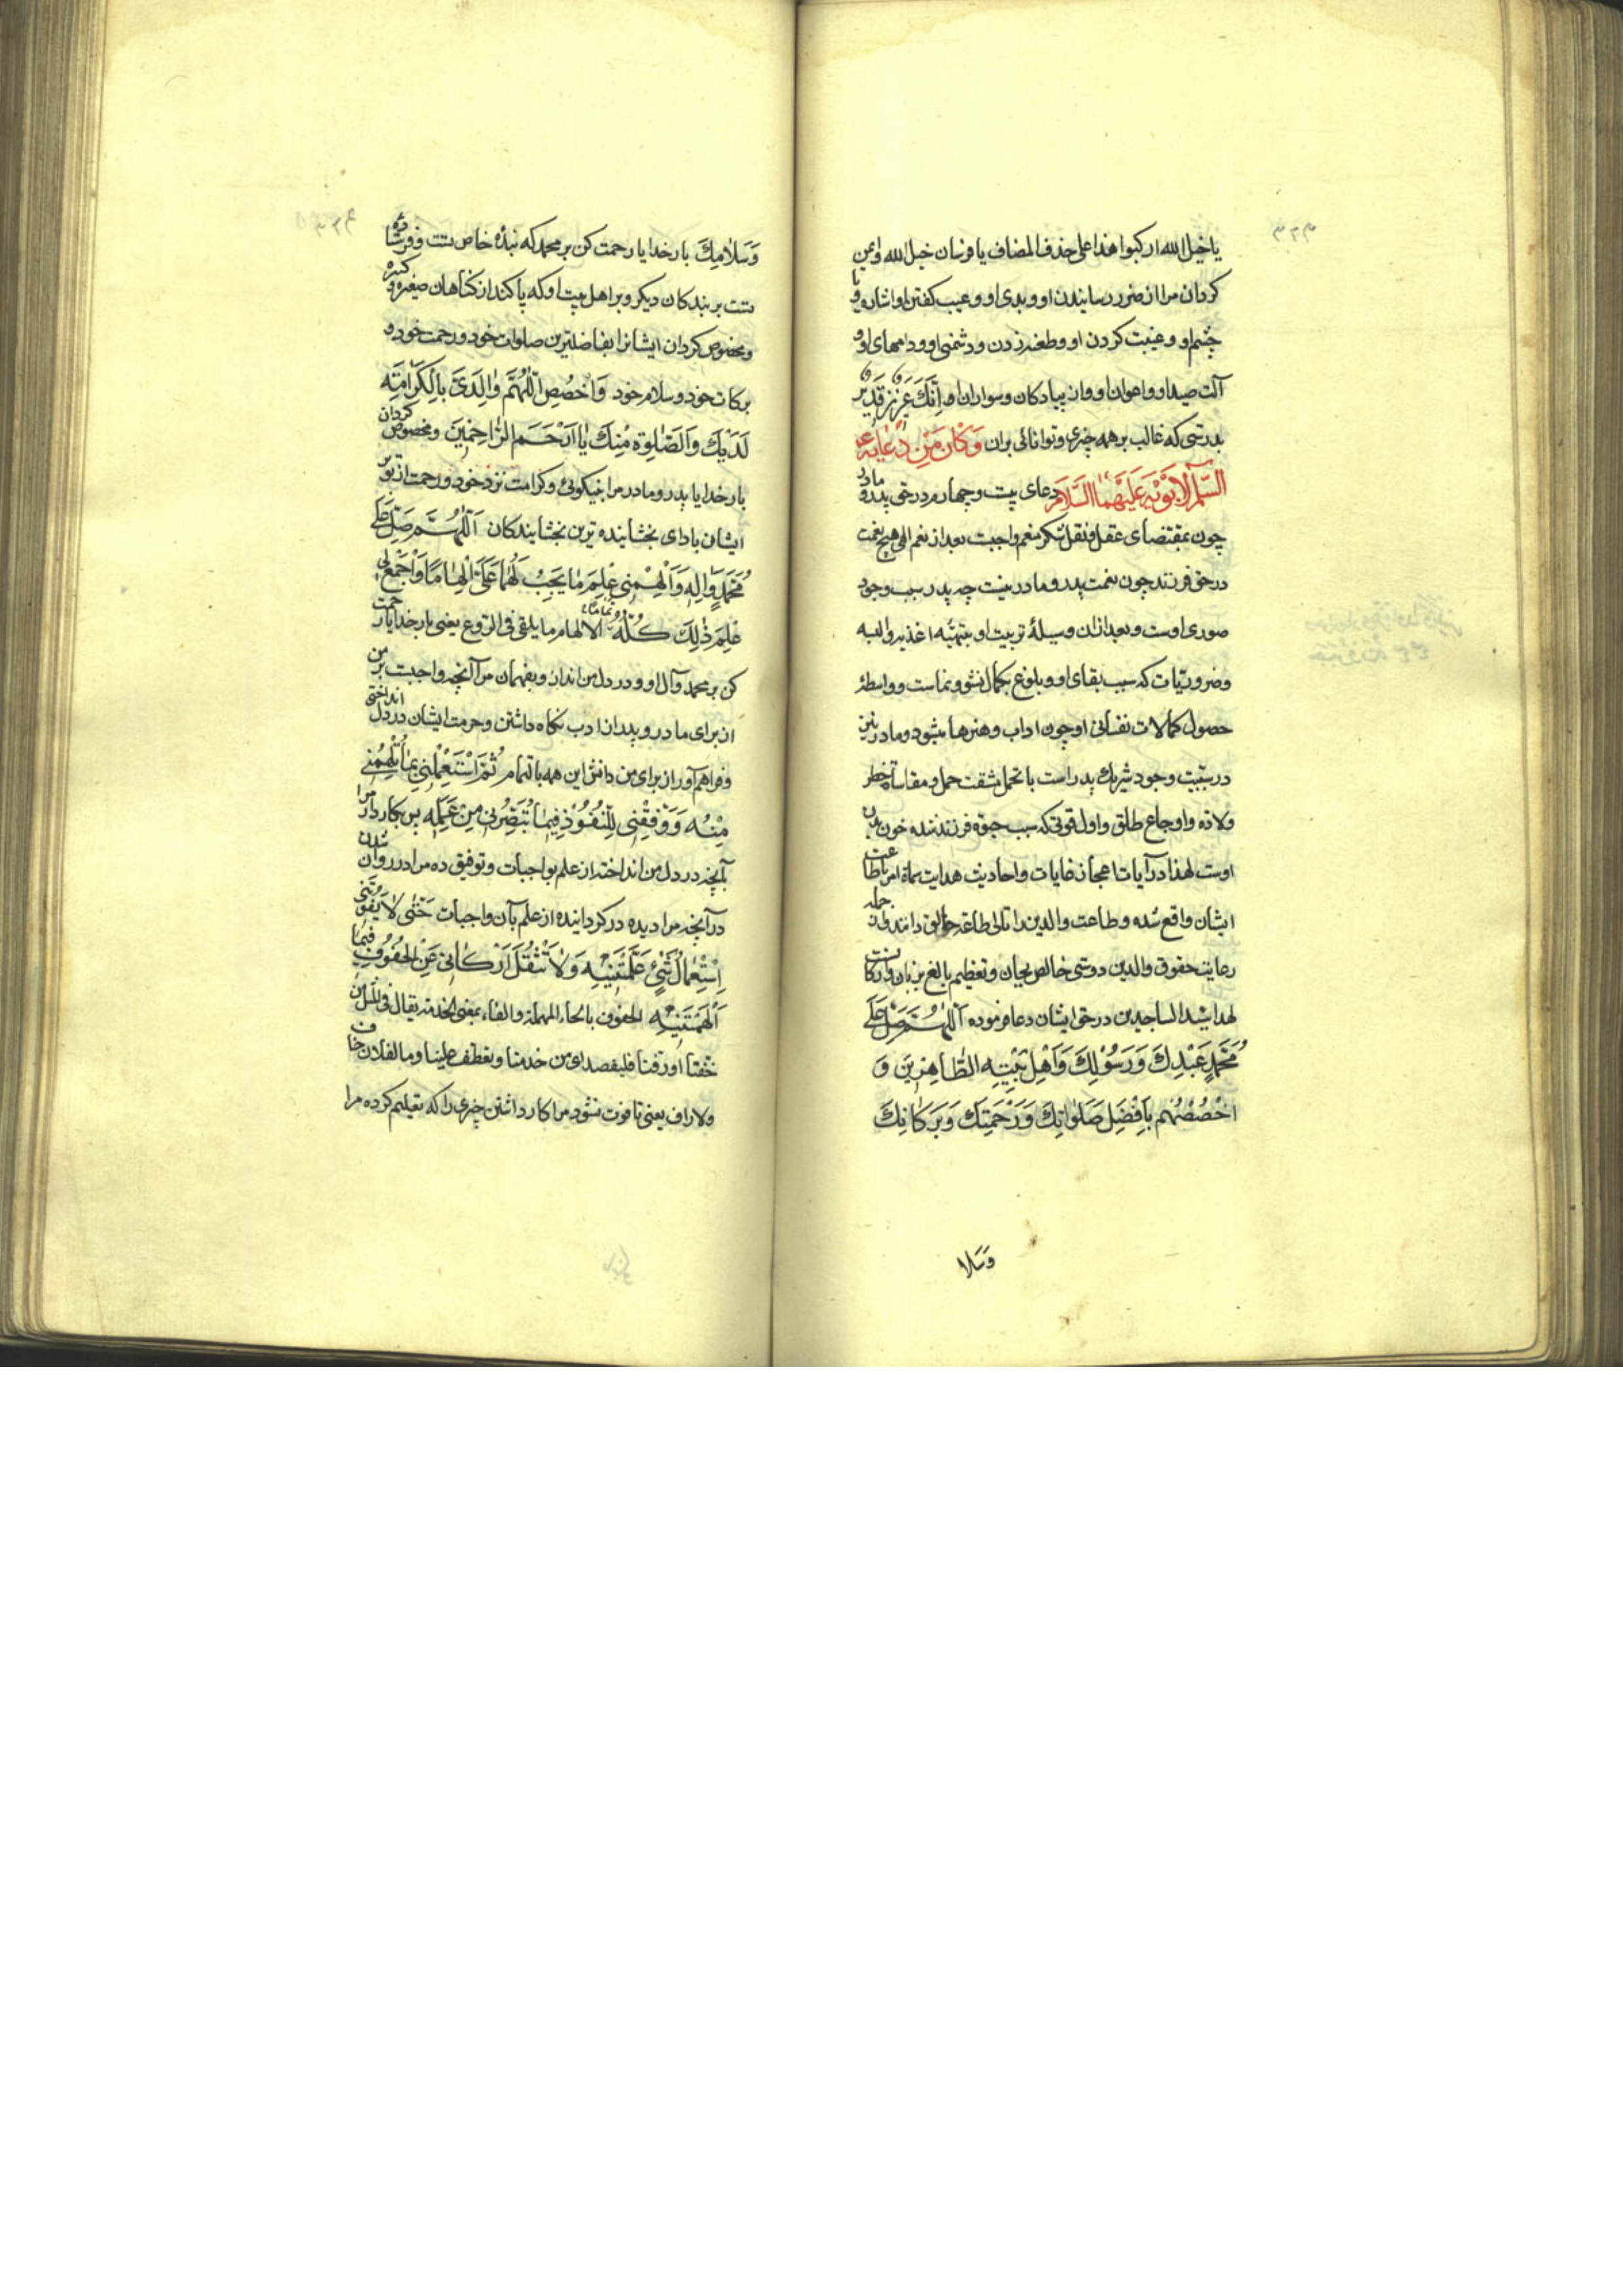 یا خیل الله ارکبوا هذا علی حذف المضاف یا فرسان خیل الله وایمن
کردان مرا از ضرر رسانیدن او و بدی او و عیب کفتن او و اشاره با
چشم او و غیبت کردن او و طعنه زدن و دشمنی او و دامهای او و
آلت صید او و اعوان او و از پیادکان و سواران او اِنَّكَ عَزِیزٌ قَدِیرٌ
بدرستی که غالب بر همه چیزی و توانائی بران وَکَانَ مِنْ دُعَائِهِ عَلَیهِ
السَّلَم لِاَبَوَیْهِ عَلَیْهِمَا السَّلَام دعای بیست و چهارم در حق پدر و مادر
چون بمقتضای عقل و نقل شکر منعم واجبست بعد از نعم الهی هیچ نعمت
در حق فرزند چون نعمت پدر و مادر نیست چه پدر سبب وجود
صوری اوست و بعد از ان وسیلهٔ تربیت او بتهیّه اغذیه و البسه
و ضروریّات که سبب بقای او و بلوغ بکمال نشو و نماست و واسطهٔ
حصول کمالات نفسانی او چون اداب و هنرها میشود و مادر نیز
در سببیت وجود شریك پدر است با تحمل مشقت حمل و مقاساة خطر
ولاده و اوجاع طلق و اول قوتی که سبب حیوة فرزند شده خون بدن
اوست لهذا در آیات اعجاز غایات و احادیث هدایت سماة امر باطاعت
ایشان واقع شده و طاعت والدین را تالی طاعة خالق دانند و از جمله
رعایت حقوق والدین دوستی خالص بجان و تعظیم بالغ بزبان و ارکانست
لهذا سید الساجدین در حق ایشان دعا فرموده اَللّٰهُمَّ صَلِّ عَلَی
مُحَمَّدٍ عَبْدِكَ وَرَسُوْلِكَ وَاَهْلِ بَیْتِهِ الطَّاهِرِیْنَ وَ
اخْصُصْهُمْ بِاَفْضَلِ صَلَوَاتِكَ وَرَحْمَتِكَ وَبَرَکَاتِكَ
وَسَلَا
وَسَلَامِكَ بار خدایا رحمت کن بر محمد که بندهٔ خاص تست و فرستاده
تست بر بندکان دیکر و بر اهل بیت او که پاکند از کناهان صغیره و کبیره
و مخصوص کردان ایشانرا بفاضلترین صلوات خود و رحمت خود و
برکات خود و سلام خود وَاخْصُصِ اللّٰهُمَّ وَالِدَیَّ بِالْکَرَامَةِ
لَدَیْكَ وَالصَّلٰوةِ مِنْكَ یَا اَرْحَمَ الرَّاحِمِیْنَ و مخصوص کردان
بار خدایا پدر و مادر مرا بنیکوئی و کرامت نزد خود و رحمت از تو بر
ایشان باد ای بخشاینده ترین بخشایندکان اَللّٰهُمَّ صَلِّ عَلَی
مُحَمَّدٍ وَاٰلِهِ وَاَلْهِمْنِی عِلْمَ مَا یَجِبُ لَهُمَا عَلَیَّ اِلْهَامًا وَاجْمَعْ لِی
عِلْمَ ذٰلِكَ کُلِّهِ تَمَامًا الالهام ما یلقی فی الروع یعنی بار خدایا رحمت
کن بر محمد و آل او و در دل من انداز و بفهمان مرا آنچه واجبست بر من
از برای مادر و پدر از ادب نکاه داشتن و حرمت ایشان در دل انداختنی
و فراهم آور از برای من دانش این همه با تمام ثُمَّ اسْتَعْمِلْنِی بِمَا تُلْهِمُنِی
مِنْهُ وَوَفِّقْنِی لِلنُّفُوْذِ فِیْمَا تُبَصِّرُنِی مِنْ عِلْمِهِ پس بکار دار مرا
بآنچه در دل من انداختهٔ از علم بواجبات و توفیق ده مرا در روان شدن
در آنچه مرا دیده در کردانیده از علم بآن واجبات حَتّٰی لَا یَفُوْتَنِی
اِسْتِعْمَالُ شَیْءٍ عَلَّمْتَنِیْهِ وَلَا تَثْقُلَ اَرْکَانِی عَنِ الْحُفُوْفِ فِیْمَا
اَلْهَمْتَنِیْهِ الحفوف بالحاء المهملة والفاء بمعنی الخدمة یقال فی المثل من
حفنا او رفنا فلیقصد ای من خدمنا و تعطف علینا و ما لفلان حاف
ولا راف یعنی تا فوت نشود مرا کار داشتن چیزی را که تعلیم کرده مرا